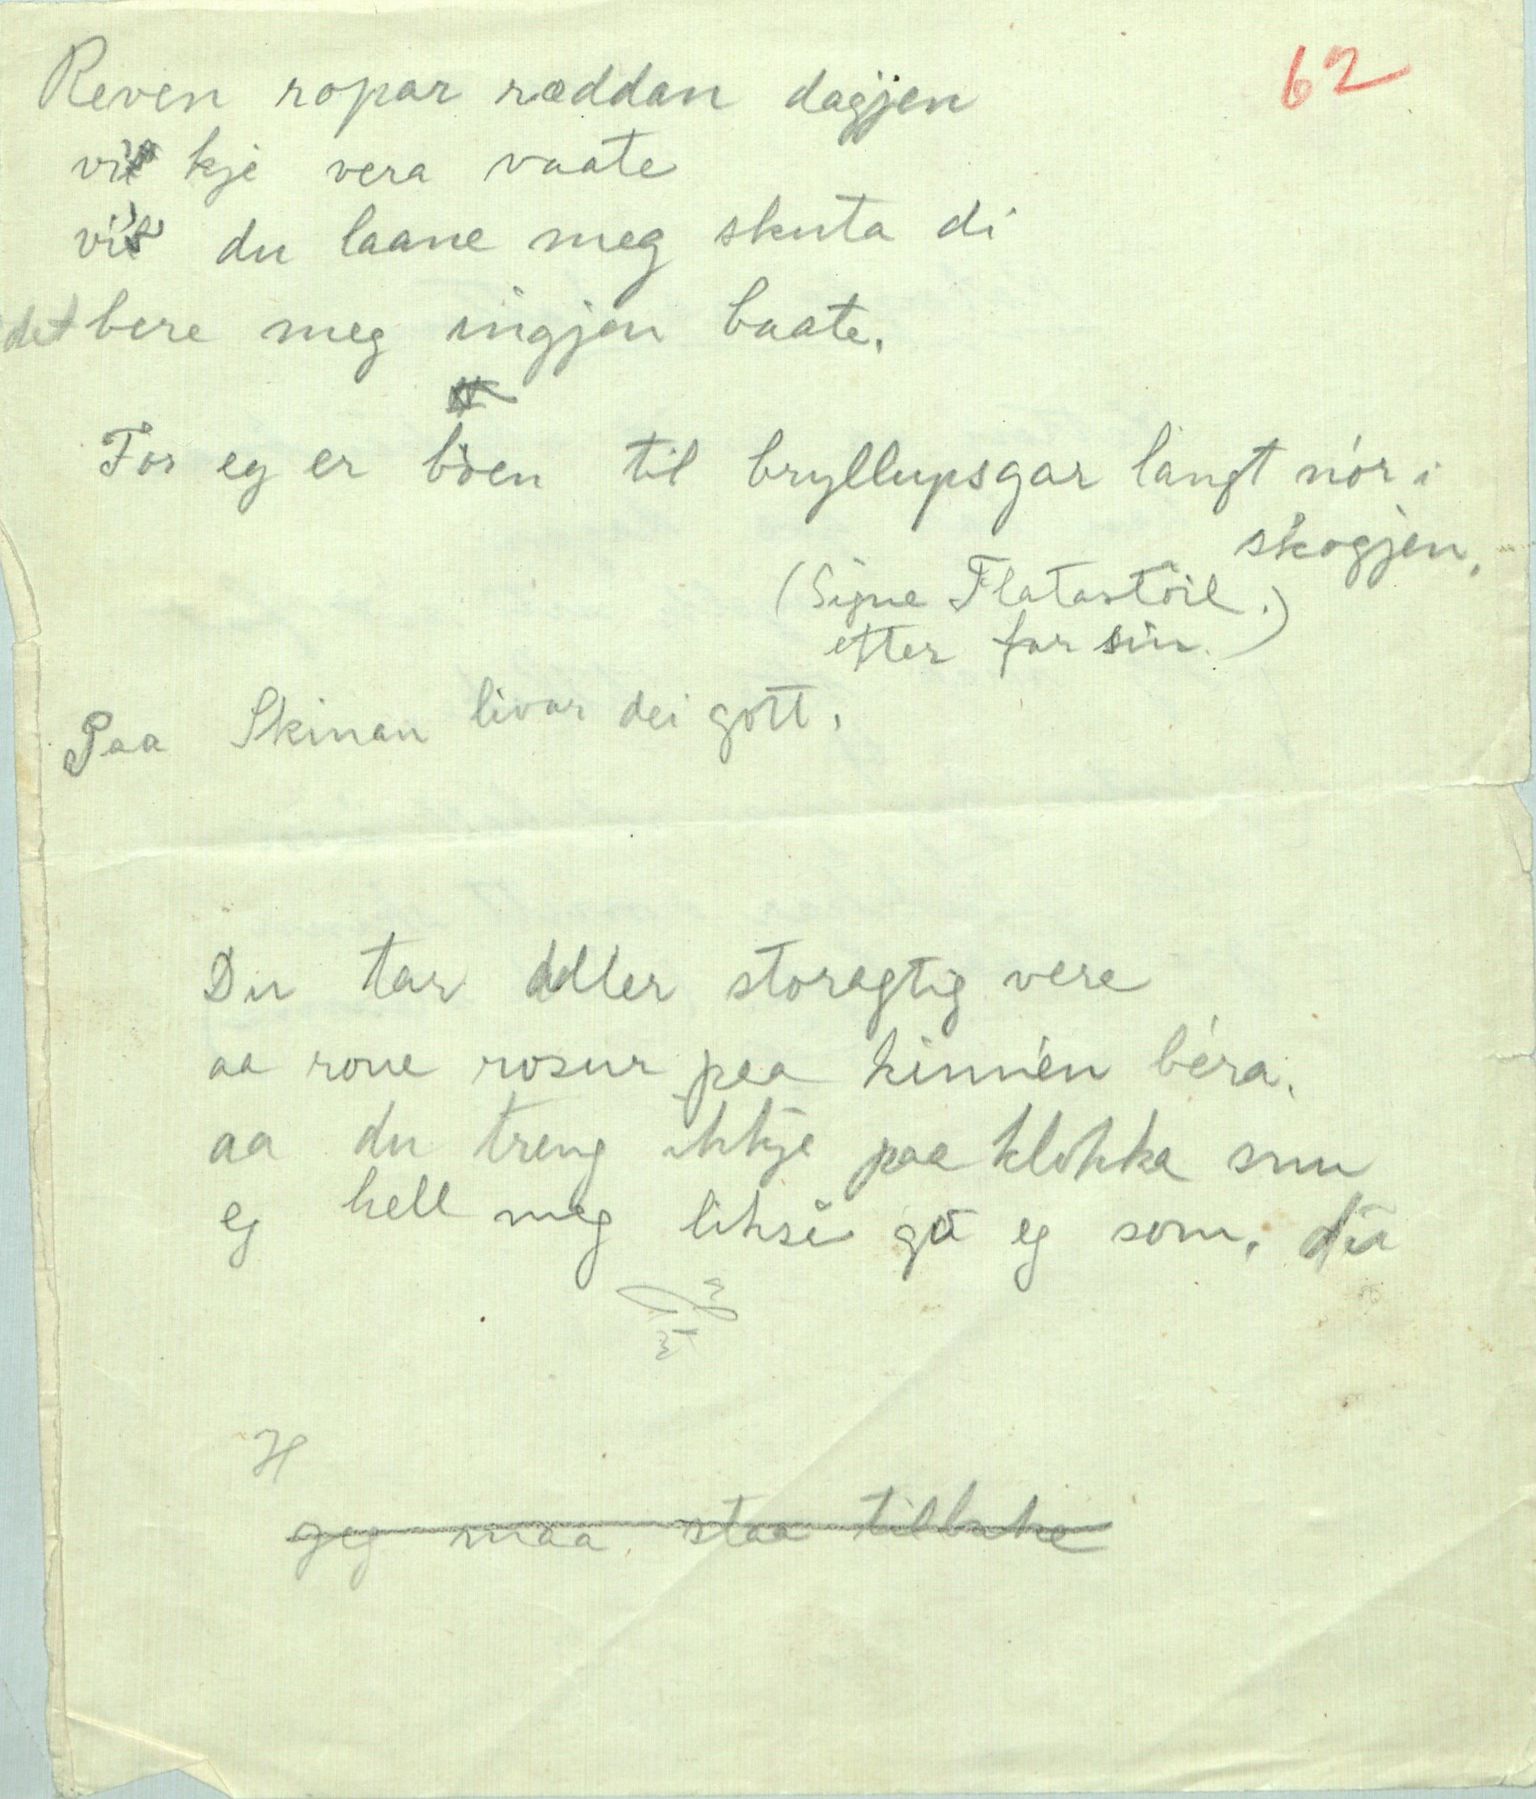 62
Reven ropar ræddan dagjen
vil kje vera vaate
vil du laane meg skuta di
det bere meg ingjen baate.
For eg er böen til bryllupsgar langt nór i
skogjen.
(Signe Flatastöil.
etter far sin.)
Paa Skinan livar dei gott.
Du tar storagtig vere
aa roue rosur paa kinnén béra.
aa du treng ikkje paa klokka snu
eg hell meg likså go eg som. du
H
geg maa staa tilbake